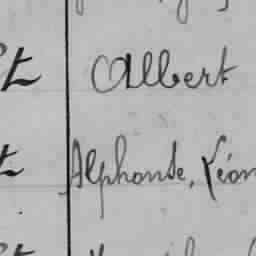 t Albert
t Alphonse, Léon